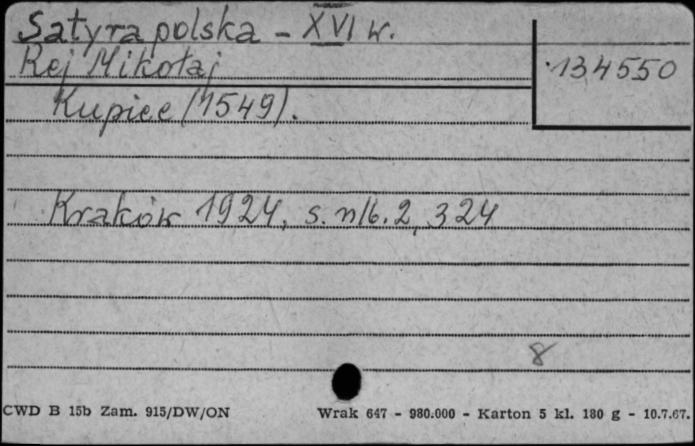 Satyra polska - XVI w.
Rej Mikołaj
134550
Kupiec (1549).
Kraków 1924, s. nlb. 2, 324
8
CWD B 15b Zam. 915/DW/ON Wrak 647 - 980.000 - Karton 5 kl. 180 g - 10.7.67.